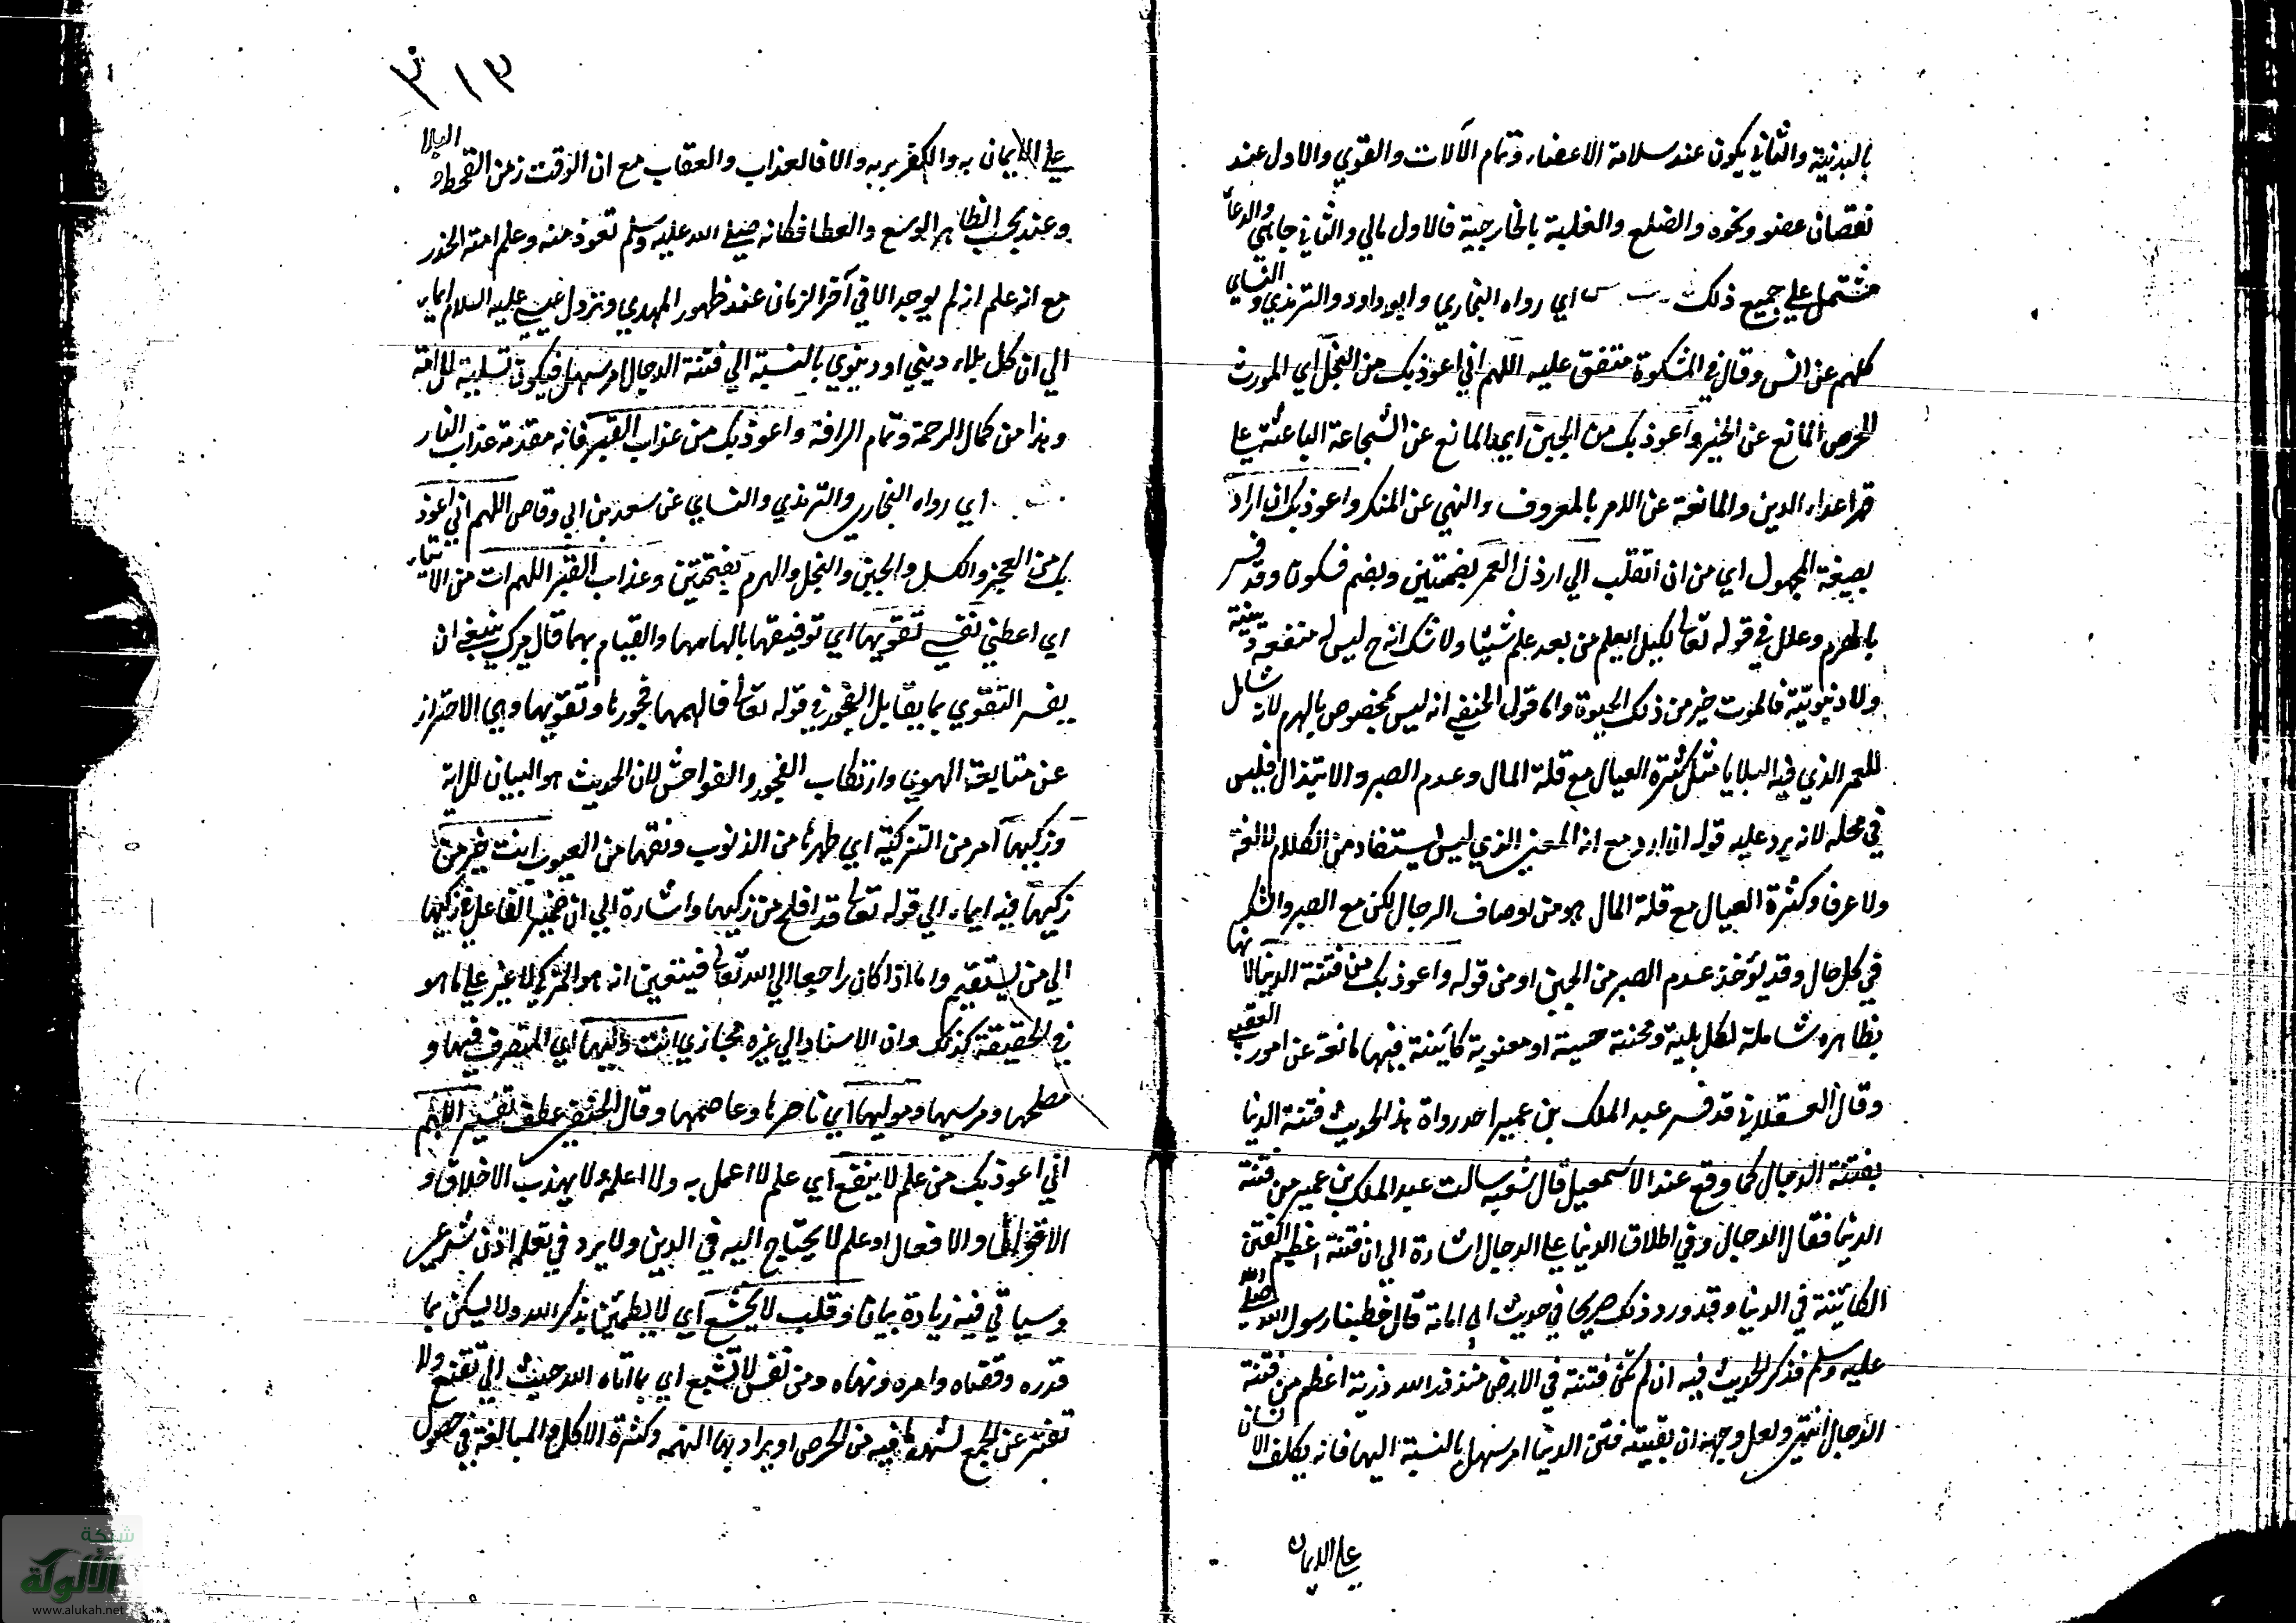 بالبدنية والثاني يكون عند سلامة الاعضاء وتمام الآلات والقوي والاول عند
نقصان عضو ونحوه والضلع والغلبة بالخارجية فالاول مالي والثاني جاهي والدعاء
مشتمل علي جميع ذلك اي رواه البخاري وابو داود والترمذي والنساي
كلهم عن انس وقال في المشكوة متفق عليه اللهم اني اعوذ بك من البخل اي المورث
للحرص المانع عن الخير واعوذ بك من الجبن اي المانع عن الشجاعة الباعثة علي
قهر اعداء الدين والمانعة عن الامر بالمعروف والنهي عن المنكر واعوذ بك ان ارد
بصيغة المجهول اي من ان انقلب الي ارذل العمر بضمتين وبضم فسكون وقد فسر
بالهرم وعلل في قوله تعالي لكيلا يعلم من بعد علم شيئا ولا شك انه ح ليس له منفعة دينية
ولا دنيوية فالموت خير من ذلك الحيوة واما قول الحنفي انه ليس بمخصوص بالهرم لانه شامل
للعمر الذي فيه البلايا مثل كثرة العيال مع قلة المال وعدم الصبر والابتذال فليس
في محله لانه يرد عليه قوله ان ارد مع انه المعني الذي ليس يستفاد من الكلام لا لغة
ولا عرفا وكثرة العيال مع قلة المال هو من اوصاف الرجال لكن مع الصبر والشكر
في كل حال وقد يؤخذ عدم الصبر من الجبن او من قوله واعوذ بك من فتنة الدنيا لانها
بظاهره شاملة لكل بلية ومحنة حسية او معنوية كائنة فيها مانعة عن امور العقبي
وقال العسقلاني قد فسر عبد الملك بن عمير احد رواة هذا الحديث فتنة الدنيا
بفتنة الدجال كما وقع عند الاسمعيلي قال شعبة سالت عبد الملك بن عمير من فتنة
الدنيا فقال الدجال وفي اطلاق الدنيا علي الدجال اشارة الي ان فتنة اعظم الفتن
الكائنة في الدنيا وقد ورد ذلك صريحا في حديث ابي امامة قال خطبنا رسول الله صلي الله
عليه وسلم فذكر الحديث فيه انه لم تكن فتنة في الارض منذ ذرا الله ذرية اعظم من فتنة
الدجال انتهي ولعل وجهه ان بقية فتن الدنيا امر سهل بالنسبة اليها فانه يكلف الانسان
علي الايمان
٣١٣
علي الايمان به والكفر بربه والا فالعذاب والعقاب مع ان الوقت زمن القحط والبلا
وعنده بحسب الظاهر الوسع والعطا فكانه صلي الله عليه وسلم تعوذ منه وعلم امته الحذر
مع انه علم انه لم يوجد الا في آخر الزمان عند ظهور المهدي ونزول عيسي عليه السلام ايماء
الي ان كل بلاء ديني او دنيوي بالنسبة الي فتنة الدجال امر سهل فيكون تسلية للامة
وهذا من كمال الرحمة وتمام الرافة واعوذ بك من عذاب القبر فانه مقدمة عذاب النار
اي رواه البخاري والترمذي والنساي عن سعد بن ابي وقاص اللهم اني اعوذ
بك من العجز والكسل والجبن والبخل والهرم بفتحتين وعذاب القبر اللهم ات من الايتاء
اي اعطني نفسي تقويها اي توفيقها بالهامها والقيام بها قال ميرك ينبغي ان
يفسر التقوي بما يقابل الفجور في قوله تعالي فالهمها فجورها وتقويها وهي الاحتراز
عن متابعة الهوي وارتكاب الفجور والفواحش لان الحديث هو البيان للاية
وزكيها امر من التزكية اي طهرها من الذنوب ونقها من العيوب انت خير من
زكيها فيه ايماء الي قوله تعالي قد افلح من زكيها واشارة الي ان ضمير الفاعل في زكيها
الي من ليستقيم واما اذا كان راجعا الي الله تعالي فيتعين انه هو المزكي لا غير علي ما هو
في الحقيقة كذلك وان الاسناد الي غيره مجازي انت وليها اي المتصرف فيها و
مصلحها ومربيها وموليها اي ناصرها وعاصمها وقال الحنفي عطف تفسير اللهم
اني اعوذ بك من علم لا ينفع اي علم لا اعمل به ولا اعلمه ولا يهذب الاخلاق و
الاقوال والافعال او علم لا يحتاج اليه في الدين ولا يرد في تعلمه اذن شرعي
وسياتي فيه زيادة بيان وقلب لا يخشع اي لا يطمئن بذكر الله ولا يسكن بما
قدره وقضاه وامره ونهاه ومن نفس لا تشبع اي بما اتاه الله حيث الي تقنع ولا
تفتر عن الجمع لشدة ما فيه من الحرص او يراد بها النهمه وكثرة الاكل والمبالغة في حصول
شبكة
الألوكة
www.alukah.net